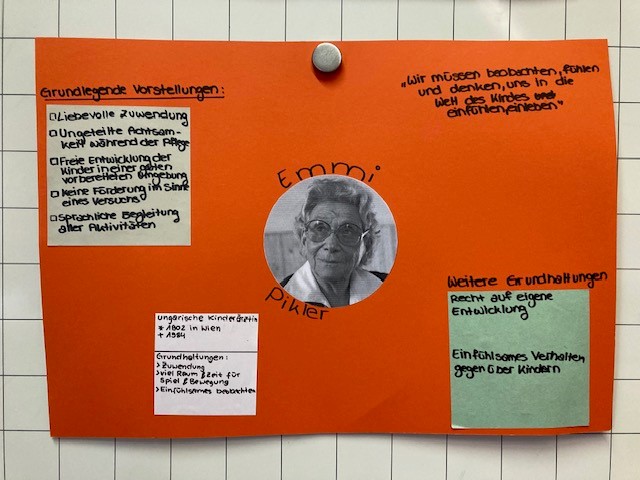 Grundlegende Vorstellungen:
Liebevolle Zuwendung
Ungeteilte Achtsam-
keit während der Pflege
Freie Entwicklung der
Kinder in einer guten
vorbereiteten Umgebung
Keine Förderung im Sinne
eines Versuchs
Sprachliche Begleitung
aller Aktivitäten
„Wir müssen beobachten, fühlen
und denken, uns in die
Welt des Kindes
einfühlen, einleben"
Emmi
Pikler
Ungarische Kinderärztin
* 1902 in Wien
+ 1984
Grundhaltungen:
> Zuwendung
> viel Raum & Zeit für
Spiel & Bewegung
> Einfühlsames beobachten
Weitere Grundhaltungen
Recht auf eigene
Entwicklung
Einfühlsames Verhalten
gegenüber Kindern